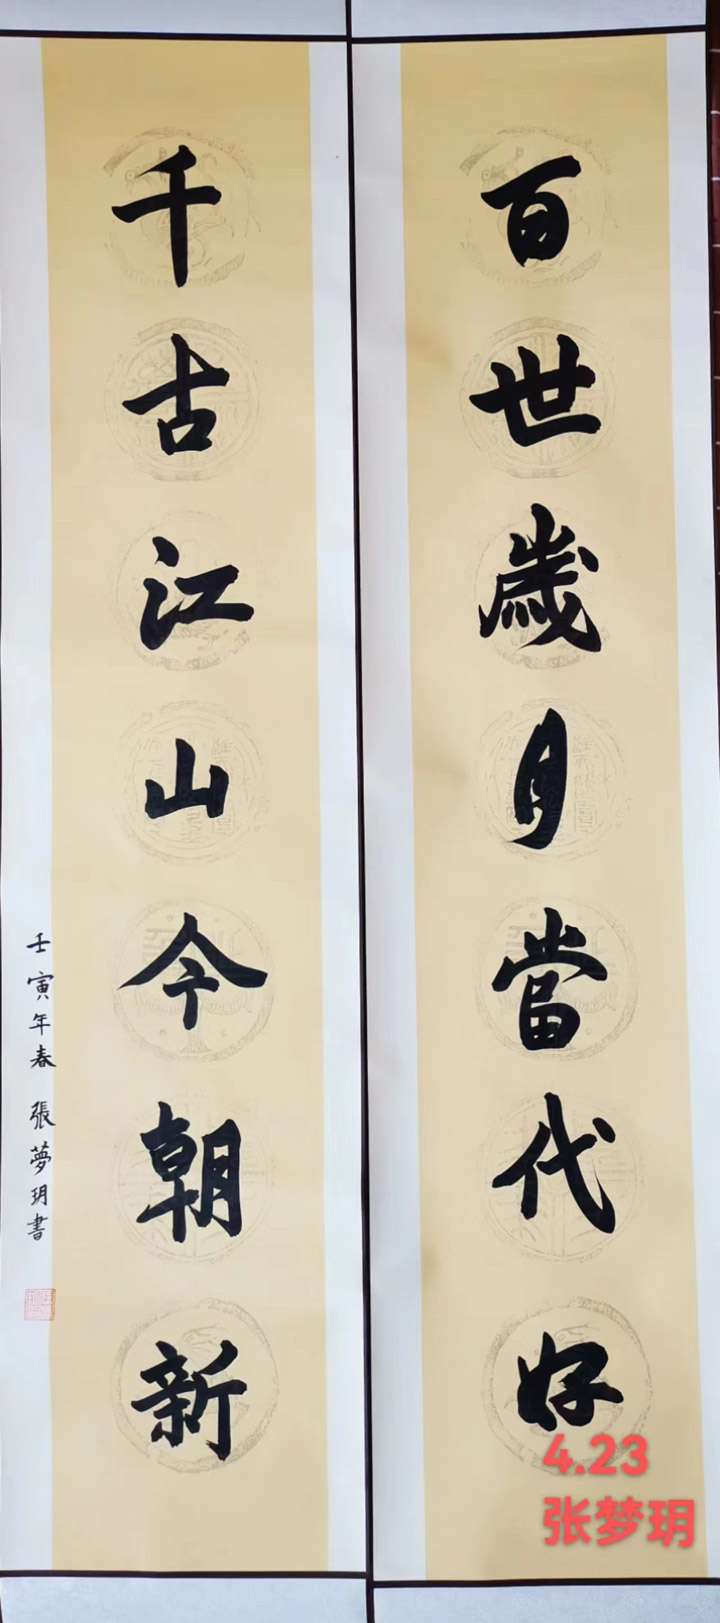 百世歲月當代好
千古江山今朝新
壬寅年春 張夢玥書
4.23
张梦玥